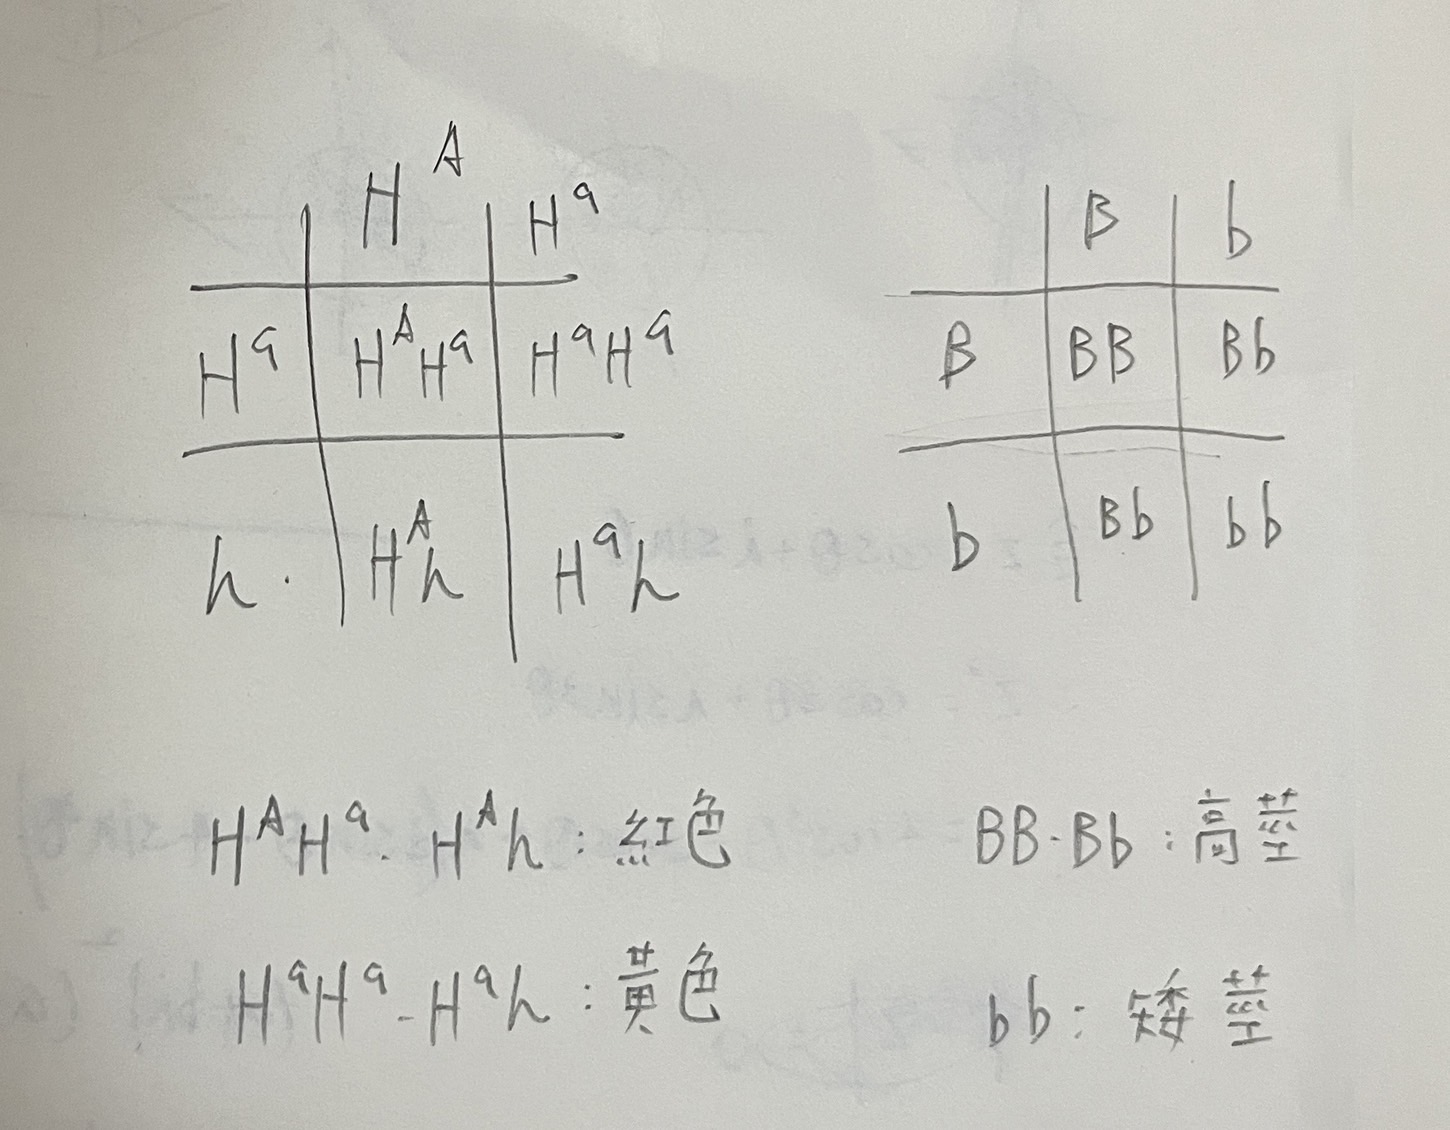 H^A H^a
H^a H^AH^a H^aH^a
h. H^Ah H^ah
B b
B BB Bb
b Bb bb
H^AH^a . H^Ah : 紅色
H^aH^a - H^ah : 黃色
BB . Bb : 高莖
bb : 矮莖